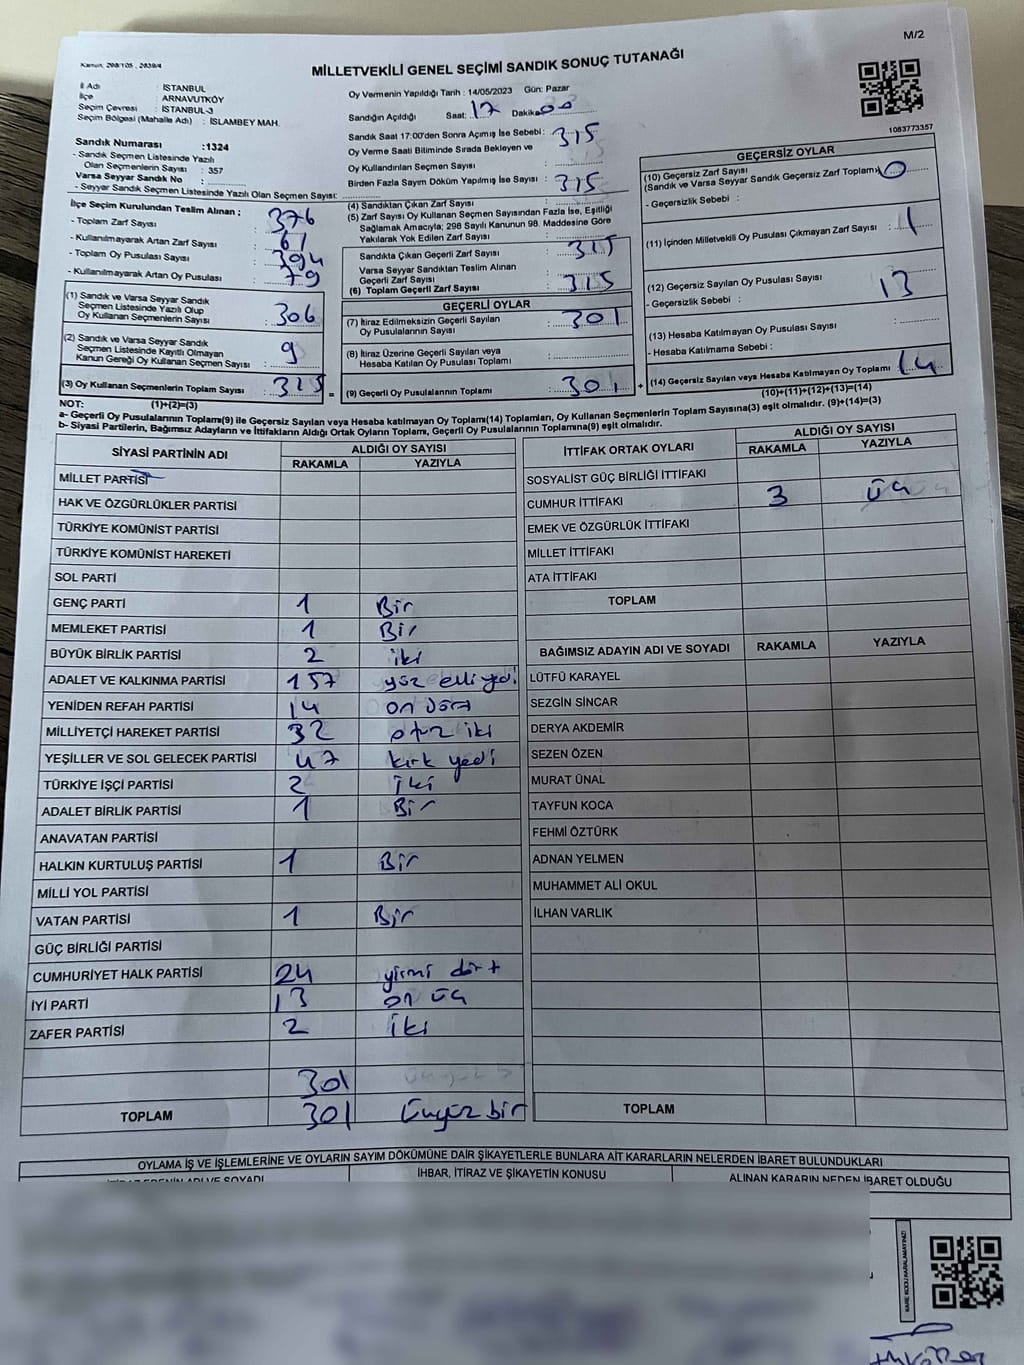 M/2
Kanun, 298/105 , 2839/4
MİLLETVEKİLİ GENEL SEÇİMİ SANDIK SONUÇ TUTANAĞI
İl Adı : İSTANBUL
İlçe : ARNAVUTKÖY
Seçim Çevresi : İSTANBUL-3
Seçim Bölgesi (Mahalle Adı) : İSLAMBEY MAH.
Sandık Numarası :1324
- Sandık Seçmen Listesinde Yazılı
Olan Seçmenlerin Sayısı : 357
Varsa Seyyar Sandık No :
- Seyyar Sandık Seçmen Listesinde Yazılı Olan Seçmen Sayısı:
Oy Vermenin Yapıldığı Tarih : 14/05/2023 Gün: Pazar
Sandığın Açıldığı Saat: 17 Dakika: 00
Sandık Saat 17:00'den Sonra Açımış İse Sebebi:
Oy Verme Saati Bitiminde Sırada Bekleyen ve
Oy Kullandırılan Seçmen Sayısı 315
Birden Fazla Sayım Döküm Yapılmış İse Sayısı :
1083773357
İlçe Seçim Kurulundan Teslim Alınan ;
- Toplam Zarf Sayısı : 376
- Kullanılmayarak Artan Zarf Sayısı : 61
- Toplam Oy Pusulası Sayısı : 394
- Kullanılmayarak Artan Oy Pusulası : 79
(1) Sandık ve Varsa Seyyar Sandık
Seçmen Listesinde Yazılı Olup
Oy Kullanan Seçmenlerin Sayısı : 306
(2) Sandık ve Varsa Seyyar Sandık
Seçmen Listesinde Kayıtlı Olmayan
Kanun Gereği Oy Kullanan Seçmen Sayısı : 9
(3) Oy Kullanan Seçmenlerin Toplam Sayısı : 315
(1)+(2)=(3)
(4) Sandıktan Çıkan Zarf Sayısı : 315
(5) Zarf Sayısı Oy Kullanan Seçmen Sayısından Fazla İse, Eşitliği
Sağlamak Amacıyla; 298 Sayılı Kanunun 98. Maddesine Göre
Yakılarak Yok Edilen Zarf Sayısı :
Sandıkta Çıkan Geçerli Zarf Sayısı : 315
Varsa Seyyar Sandıktan Teslim Alınan
Geçerli Zarf Sayısı :
(6) Toplam Geçerli Zarf Sayısı : 315
GEÇERLİ OYLAR
(7) İtiraz Edilmeksizin Geçerli Sayılan
Oy Pusulalarının Sayısı : 301
(8) İtiraz Üzerine Geçerli Sayılan veya
Hesaba Katılan Oy Pusulası Toplamı :
(9) Geçerli Oy Pusulalarının Toplamı : 301
GEÇERSİZ OYLAR
(10) Geçersiz Zarf Sayısı
(Sandık ve Varsa Seyyar Sandık Geçersiz Zarf Toplamı) 0
- Geçersizlik Sebebi :
(11) İçinden Milletvekili Oy Pusulası Çıkmayan Zarf Sayısı : 1
(12) Geçersiz Sayılan Oy Pusulası Sayısı : 13
- Geçersizlik Sebebi :
(13) Hesaba Katılmayan Oy Pusulası Sayısı :
- Hesaba Katılmama Sebebi :
(14) Geçersiz Sayılan veya Hesaba Katılmayan Oy Toplamı : 14
(10)+(11)+(12)+(13)=(14)
NOT:
a- Geçerli Oy Pusulalarının Toplamı(9) ile Geçersiz Sayılan veya Hesaba katılmayan Oy Toplamı(14) Toplamları, Oy Kullanan Seçmenlerin Toplam Sayısına(3) eşit olmalıdır. (9)+(14)=(3)
b- Siyasi Partilerin, Bağımsız Adayların ve İttifakların Aldığı Ortak Oyların Toplamı, Geçerli Oy Pusulalarının Toplamına(9) eşit olmalıdır.
SİYASİ PARTİNİN ADI ALDIĞI OY SAYISI
RAKAMLA YAZIYLA
MİLLET PARTİSİ
HAK VE ÖZGÜRLÜKLER PARTİSİ
TÜRKİYE KOMÜNİST PARTİSİ
TÜRKİYE KOMÜNİST HAREKETİ
SOL PARTİ
GENÇ PARTİ 1 Bir
MEMLEKET PARTİSİ 1 Bir
BÜYÜK BİRLİK PARTİSİ 2 iki
ADALET VE KALKINMA PARTİSİ 157 yüz elli yedi
YENİDEN REFAH PARTİSİ 14 on dört
MİLLİYETÇİ HAREKET PARTİSİ 32 otuz iki
YEŞİLLER VE SOL GELECEK PARTİSİ 47 kırk yedi
TÜRKİYE İŞÇİ PARTİSİ 2 iki
ADALET BİRLİK PARTİSİ 1 Bir
ANAVATAN PARTİSİ
HALKIN KURTULUŞ PARTİSİ 1 Bir
MİLLİ YOL PARTİSİ
VATAN PARTİSİ 1 Bir
GÜÇ BİRLİĞİ PARTİSİ
CUMHURİYET HALK PARTİSİ 24 yirmi dört
İYİ PARTİ 13 on üç
ZAFER PARTİSİ 2 iki
301
TOPLAM 301 Üçyüz bir
İTTİFAK ORTAK OYLARI ALDIĞI OY SAYISI
RAKAMLA YAZIYLA
SOSYALİST GÜÇ BİRLİĞİ İTTİFAKI
CUMHUR İTTİFAKI 3 üç
EMEK VE ÖZGÜRLÜK İTTİFAKI
MİLLET İTTİFAKI
ATA İTTİFAKI
TOPLAM
BAĞIMSIZ ADAYIN ADI VE SOYADI RAKAMLA YAZIYLA
LÜTFÜ KARAYEL
SEZGİN SİNCAR
DERYA AKDEMİR
SEZEN ÖZEN
MURAT ÜNAL
TAYFUN KOCA
FEHMİ ÖZTÜRK
ADNAN YELMEN
MUHAMMET ALİ OKUL
İLHAN VARLIK
TOPLAM
OYLAMA İŞ VE İŞLEMLERİNE VE OYLARIN SAYIM DÖKÜMÜNE DAİR ŞİKAYETLERLE BUNLARA AİT KARARLARIN NELERDEN İBARET BULUNDUKLARI
İHBAR, İTİRAZ VE ŞİKAYETİN KONUSU
ALINAN KARARIN NEDEN İBARET OLDUĞU
KARE KODU KARALAMAYINIZ!